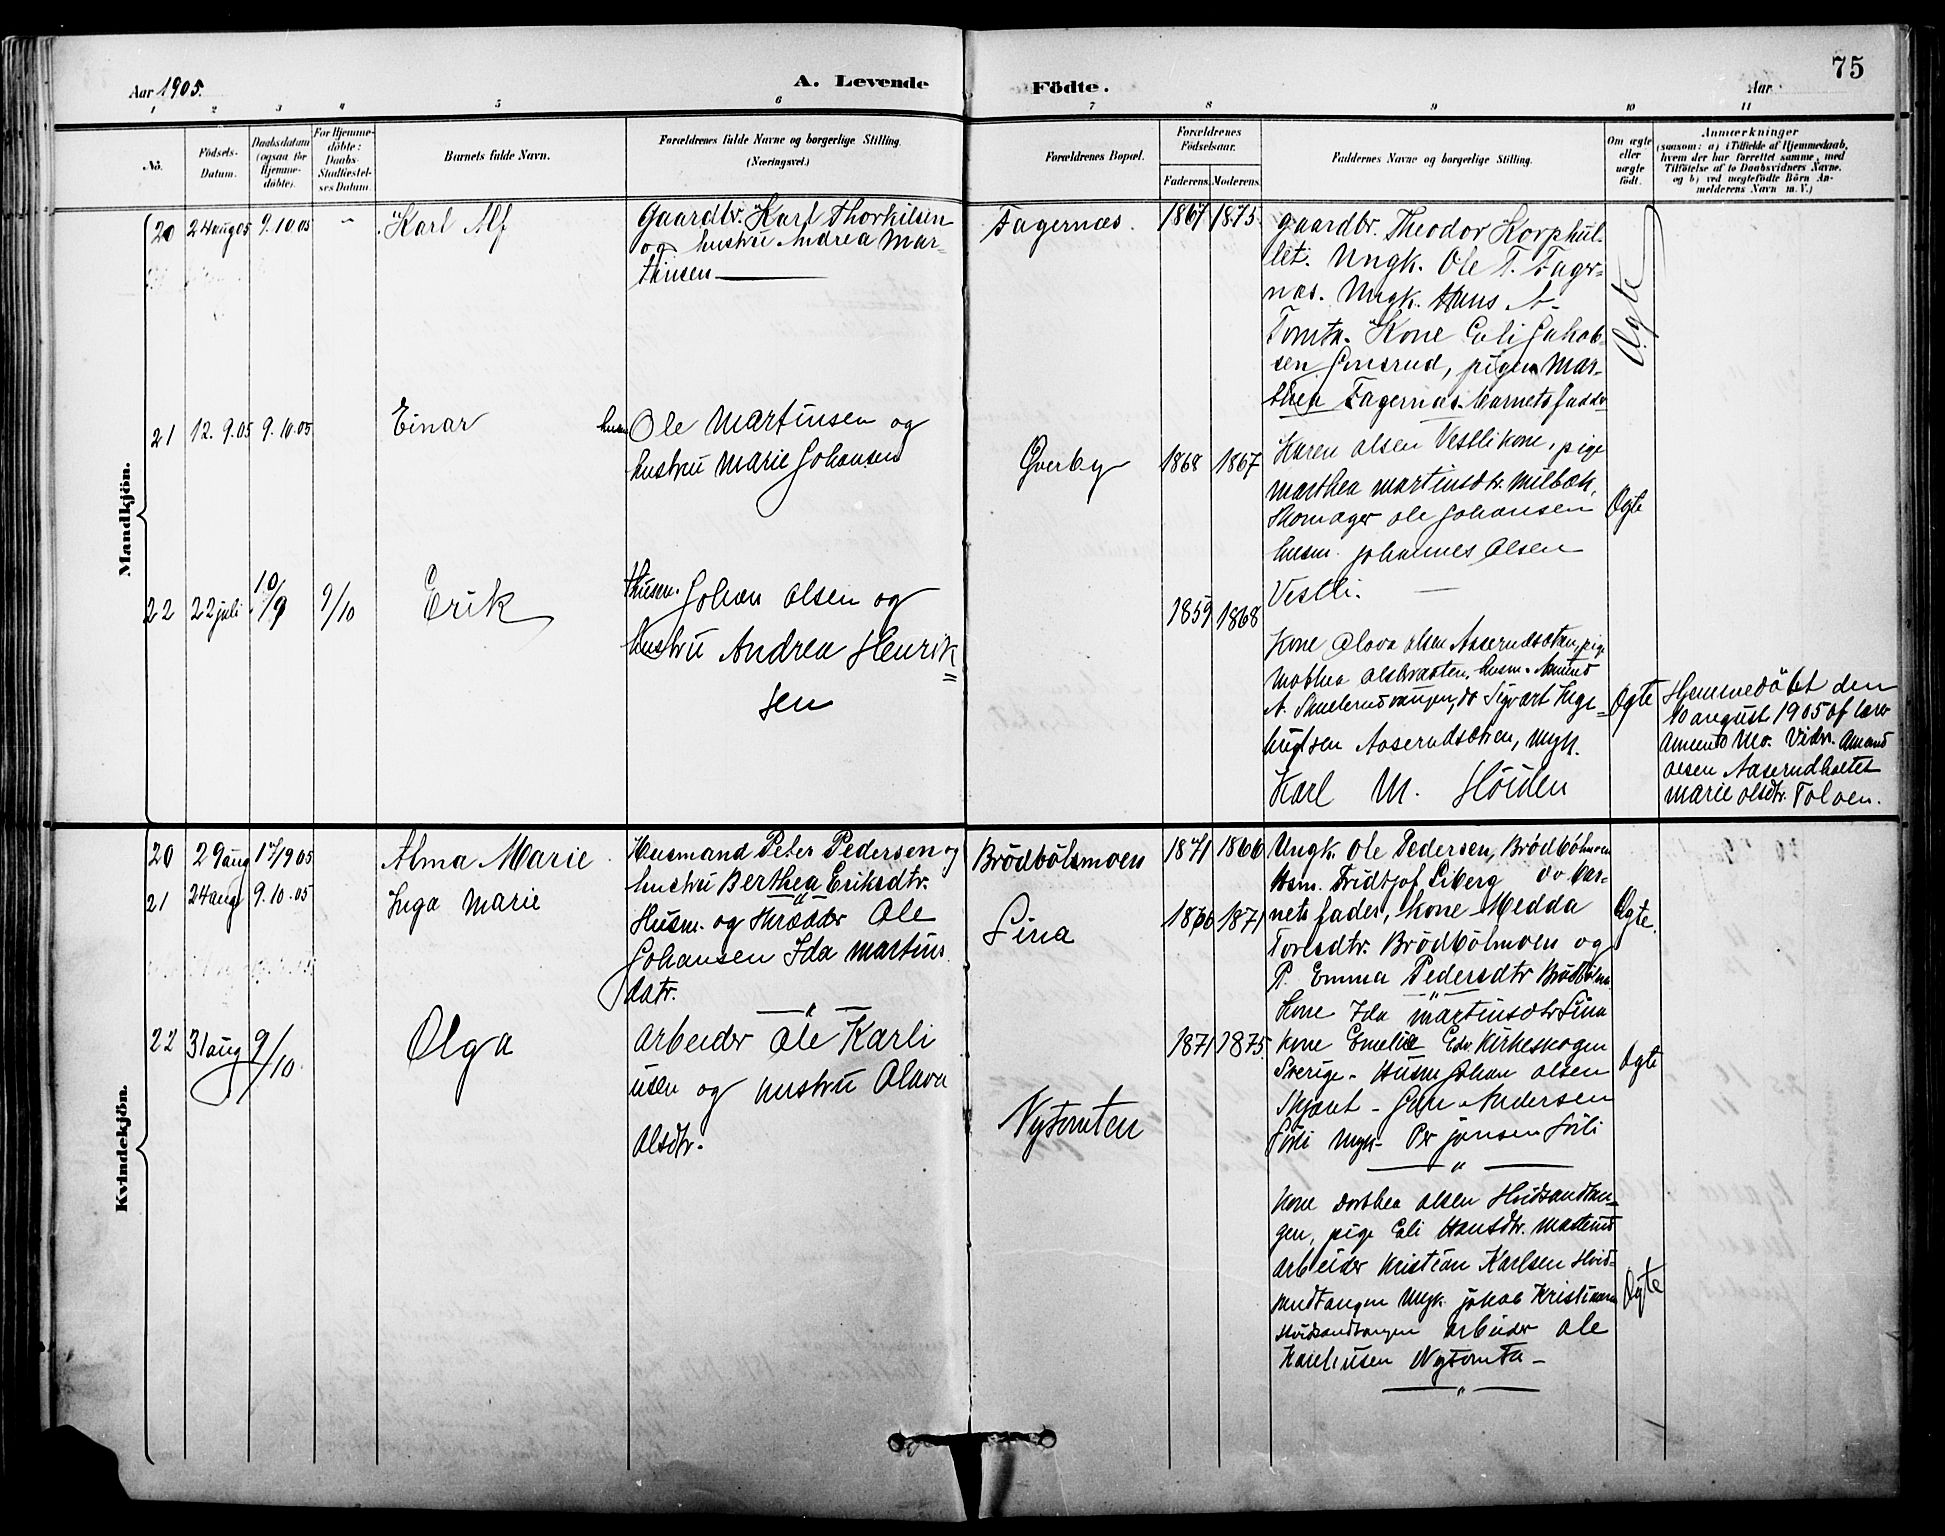 75
Aar 1905.
A. Levende
Födte.
Aar
1 2 3 4 5 6 7 8 9 10 11
No.
Födsels-
Datum.
Daabsdatum
(ogsaa for
Hjemme-
döbte).
For Hjemme-
döbte:
Daabs-
Stadfæstel-
ses Datum.
Barnets fulde Navn.
Forældrenes fulde Navne og borgerlige Stilling.
(Næringsvei.)
Forældrenes Bopæl.
Forældrenes
Födselsaar.
Faderens. Moderens.
Faddernes Navne og borgerlige Stilling.
Om ægte
eller
uægte
født.
Anmærkninger
(saasom: a) i Tilfælde af Hjemmedaab,
hvem der har forrettet samme, med
Tilföielse af to Daabsvidners Navne.
og b) ved uægtefödte Börn An-
melderens Navn m. V.)
Mandkjön.
20 24 aug 05 9.10 05 - Karl Alf
Gaardbr. Karl Thorkilsen
og hustru Andrea Mar-
thinsen
Fagernæs. 1867 1875.
gaardbr. Theodor Korphul-
let. Ungk. Ole T. Fager-
næs. Ungk. Hans A-
Tomta. Kone Eli Jakob-
sen, pigen Mar-
Fagernæs. barnets fader
Ægte
21 12. 9.05 9.10.05 Einar
husm Ole Martinsen og
hustru Marie Johansen
Gverby 1868 1867
Karen Olsen Vestli kone, pige
Marthea Martinsdtr. Milbæk,
Skomager Ole Johansen
husm. Johannes Olsen
Vestli.
Ægte
22 22 juli 10/9 9/10 Erik
Husm. Johan Olsen og
hustru Andrea Henrik=
sen
1859 1868
Kone Olava Olsen Aaserudsætren, pige
husm. Amund
A. do Sigvart Inge=
Aaserudsætren, ungk.
Karl M. Höiden
Ægte
Hjemmedöbt den
10 august 1905 af lærer
Amund Mo. Vidn. Amund
Olsen Aaserudholtet
Marie Olsdtr. Tolven.
Kvindekjön.
20 29 aug 17/9 05 Alma Marie.
Husmand Peter Pedersen og
hustru Berthea Eriksdtr.
Brödbölsmoen 1871 1866
Ungk. Ole Pedersen, Brödbölmoen
Husm. Fridtjof Liberg do bar-
nets fader, kone Medda
Toresdtr. Brödbölmoen og
P. Emma Pedersdtr Brödbölm
Ægte.
21 24 aug 9.10.05 Inga Marie
Husm. og Skræder Ole
Johansen Ida Martins
datr.
Lina 1866 1871
Kone Ida Martinsdtr Lina
Kone Emelie Edv. Kirkeskogen
Sverige - Husm Johan Olsen
Skjaret - Gun Andersen
Sörli ungk- Per Jonsen Sörli
Ægte
22 31 aug 9/10 Olga
Arbeider Ole Karli
usen og hustru Olava
Olsdtr.
Nytomten 1871 1875
Kone Dorthea Olsen Hvidsandtan=
gen, pige Eli Hansdtr. Masterud
arbeider Kristian Karlsen Hvid=
sandtangen Ungk. Jakob Kristiansen
Hvidsandtangen arbeider Ole
Karliusen Nytomta-
Ægte